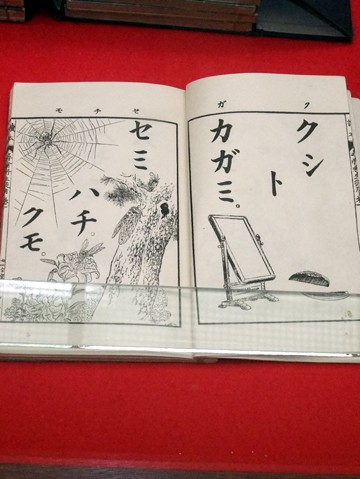 クガ
クシ
ト
カガミ。
セチモ
セミ。
ハチ。
クモ。